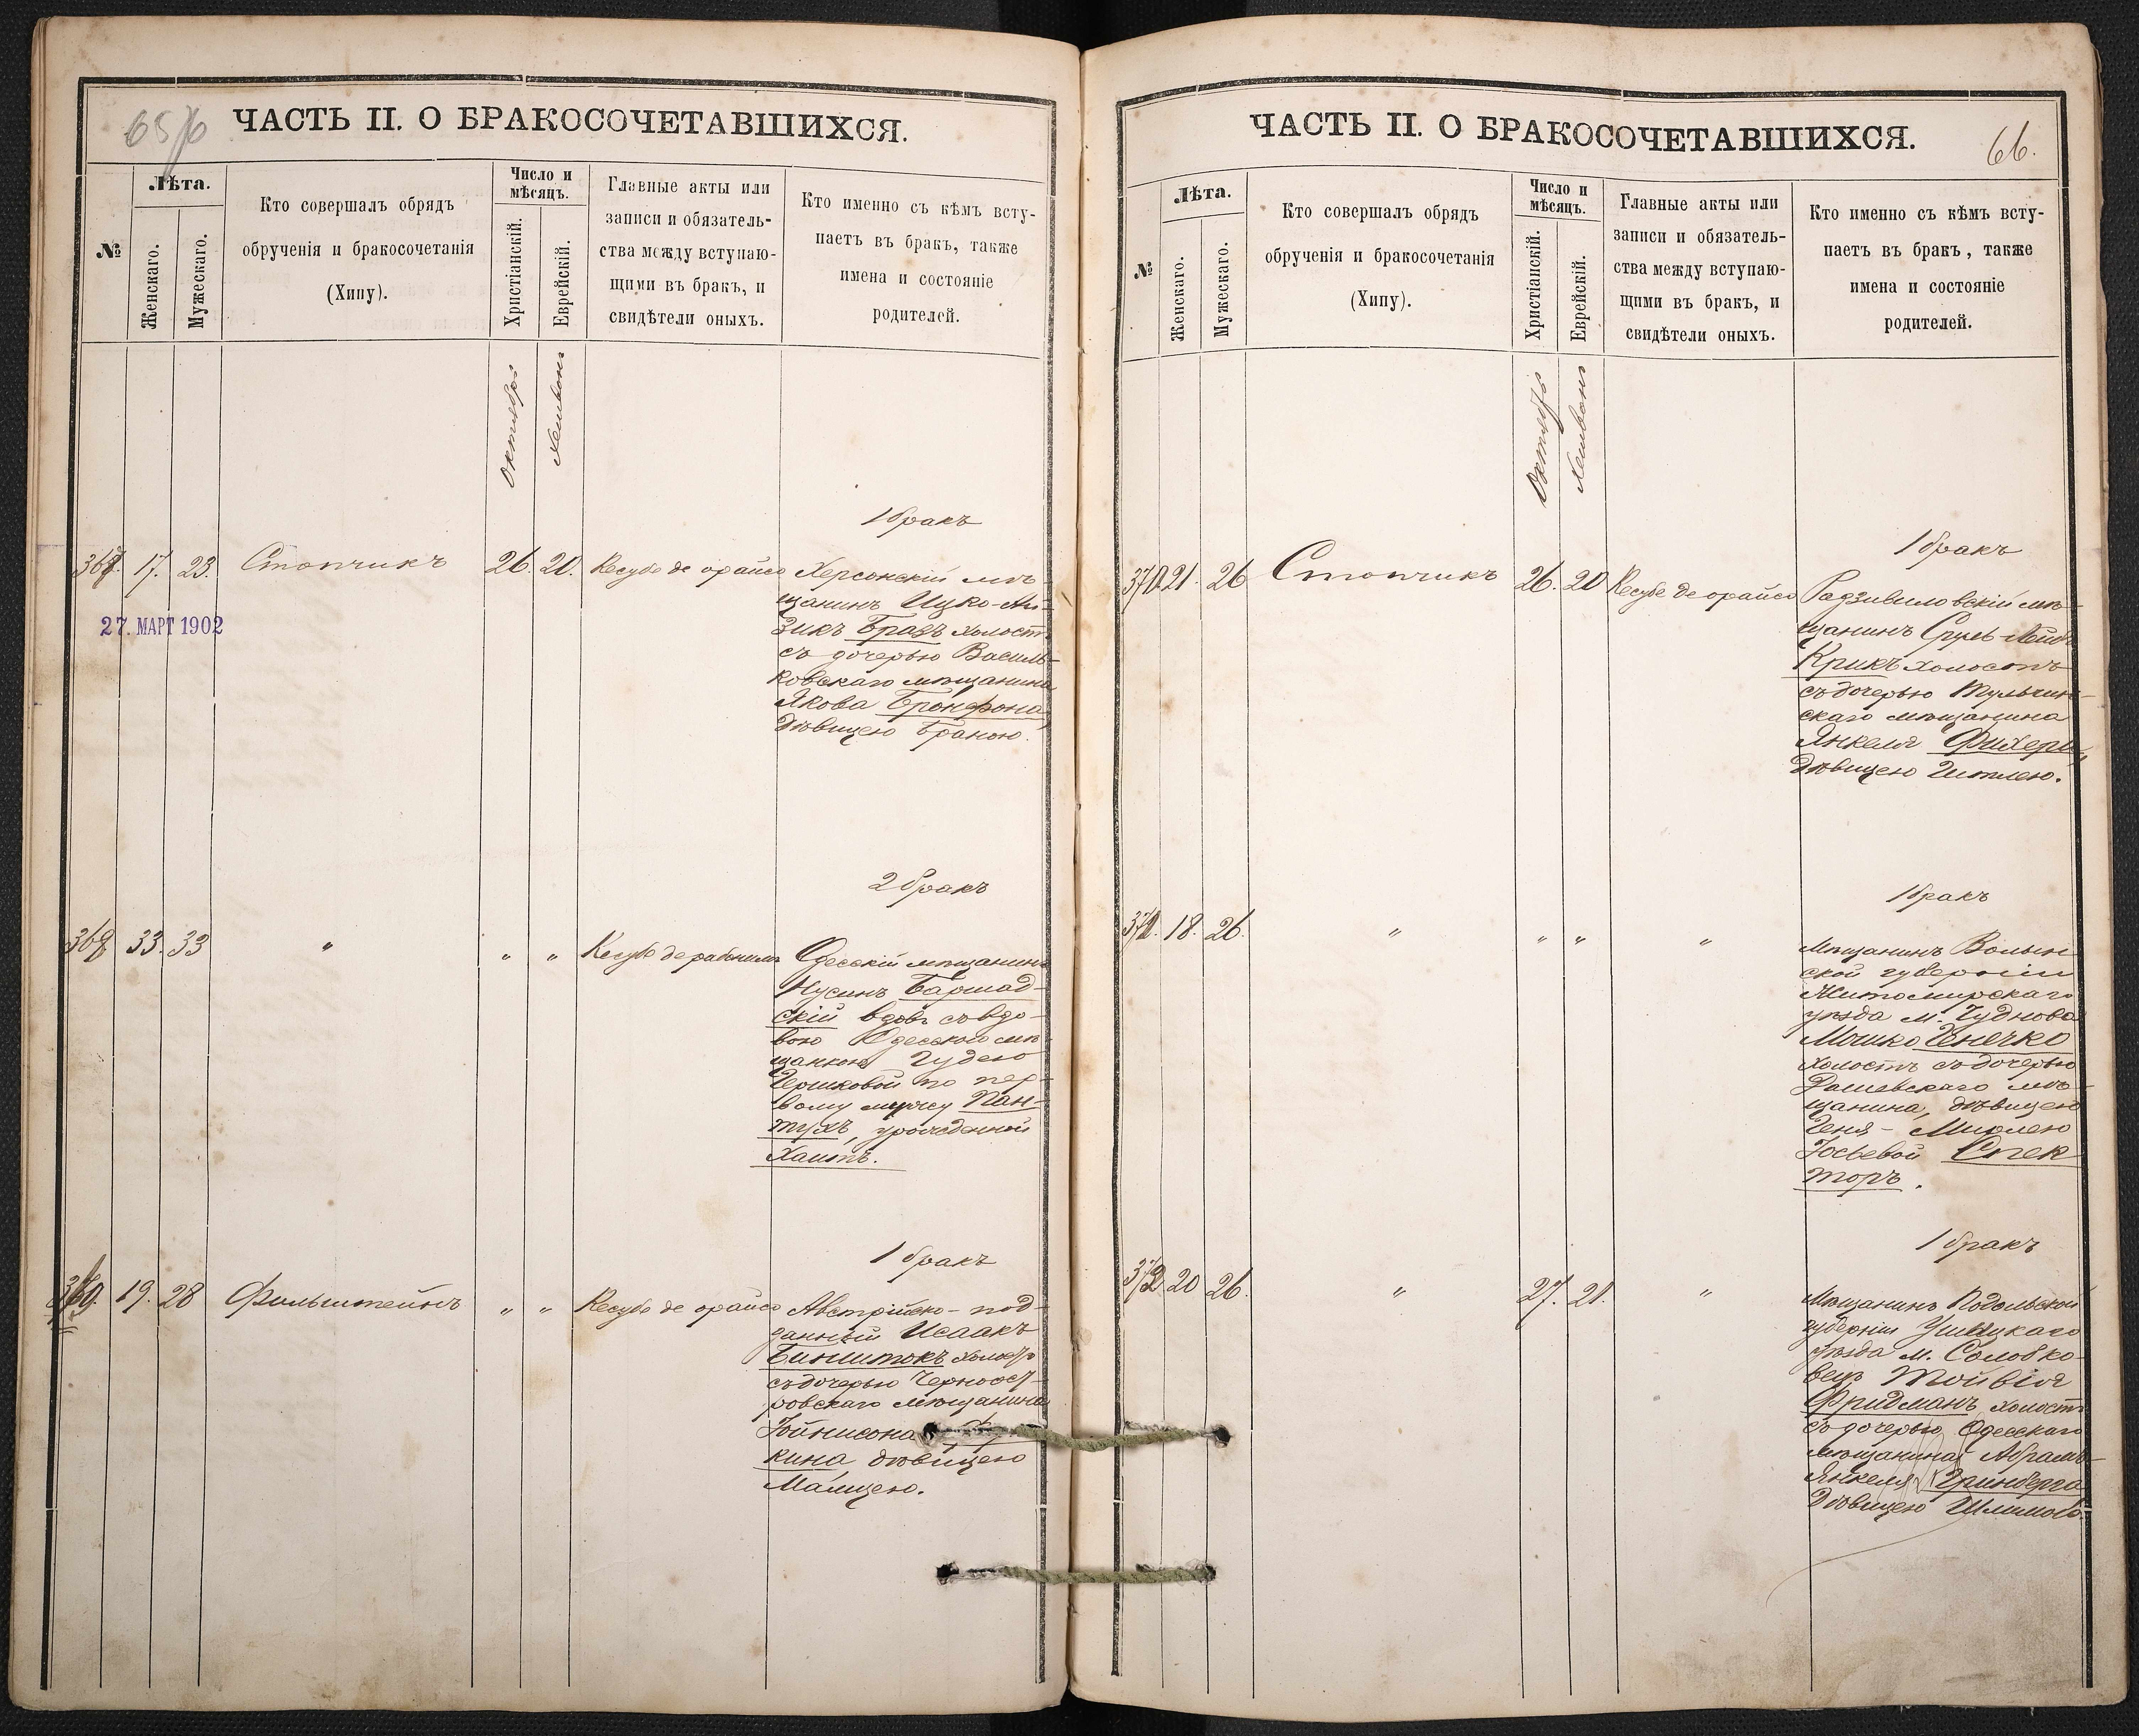 65
ЧАСТЬ II. О БРАКОСОЧЕТАВШИХСЯ.
№
Лѣта.
Женскаго.
Мужескаго.
Кто совершалъ обрядъ
обрученія и бракосочетанія
(Хипу).
Число и
мѣсяцъ.
Христіанскій.
Еврейскій.
Главные акты или
записи и обязатель-
ства между вступаю-
щими въ бракъ, и
свидѣтели оныхъ.
Кто именно съ кѣмъ всту-
паетъ въ бракъ, также
имена и состояніе
родителей.
Октябрь
Хешвонъ
1 бракъ
17. 23. Стопчикъ 26. 20. Кесубо де орайсо Херсонскій мѣ-
щанинъ Ицко-Ай-
зикъ холостъ
съ дочерью Василь-
ковскаго мѣщанина
Якова Бронфона,
дѣвицею Браною.
27. МАРТ 1902
2 бракъ
33. 33 " " " Кесубо де рабонимъ Одесскій мѣщанинъ
Нусинъ Баршад-
скій вдовъ съ вдо-
вою Одесской мѣ-
щанкой Гудею
Гершковой по пер-
вому мужу Пан-
тухъ, урожденной
Хаитъ.
1 бракъ
19. 28 Фильштейнъ " " Кесубо де орайсо Австрійско-под-
данный Исаакъ
Бинштокъ холостъ
съ дочерью Черноост-
ровскаго мѣщанина
кина дѣвицею
Малцею.
ЧАСТЬ II. О БРАКОСОЧЕТАВШИХСЯ.
66.
№
Лѣта.
Женскаго.
Мужескаго.
Кто совершалъ обрядъ
обрученія и бракосочетанія
(Хипу).
Число и
мѣсяцъ.
Христіанскій.
Еврейскій.
Главные акты или
записи и обязатель-
ства между вступаю-
щими въ бракъ, и
свидѣтели оныхъ.
Кто именно съ кѣмъ всту-
паетъ въ бракъ, также
имена и состояніе
родителей.
Октябрь
Хешвонъ
1 бракъ
370 21. 26 Стопчикъ 26. 20 Кесубе де орайсо Радзивиловскій мѣ-
щанинъ Сруль-Лейб
Крикъ холостъ
съ дочерью Тульчин-
скаго мѣщанина
Янкеля
дѣвицею Гитлею.
1 бракъ
371. 18. 26. " " " " Мѣщанинъ Волын-
ской губерніи
Житомирскаго
уѣзда м. Чуднова
Мошко Генечко
холостъ съ дочерью
Дашевскаго мѣ-
щанина, дѣвицею
Геня-Мирлею
Іосьевой Спек-
торъ.
1 бракъ
372 20 26. " 27. 21. " Мѣщанинъ Подольской
губерніи Ушицкаго
уѣзда м. Соловко-
вецъ Тойвія
Фридманъ холостъ
съ дочерью Одесскаго
мѣщанина Абрамъ-
Янкеля Гринберга
дѣвицею